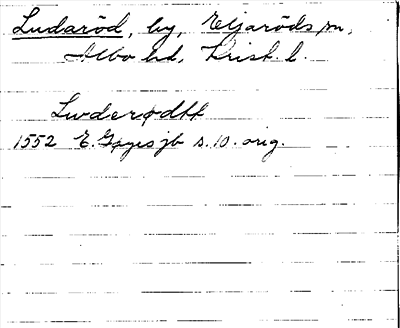 Ludaröd, by, Eljaröds sn,
Albo hd, Krist. l.
Luderødtt
1552 E. Gøyes jb s. 10. orig.